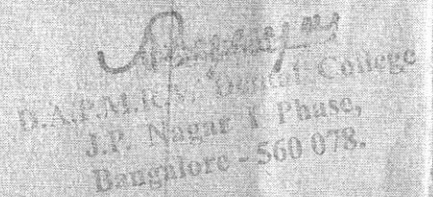 D.A.P.M.R.V. Dental College
J.P. Nagar I Phase,
Bangalore - 560 078.